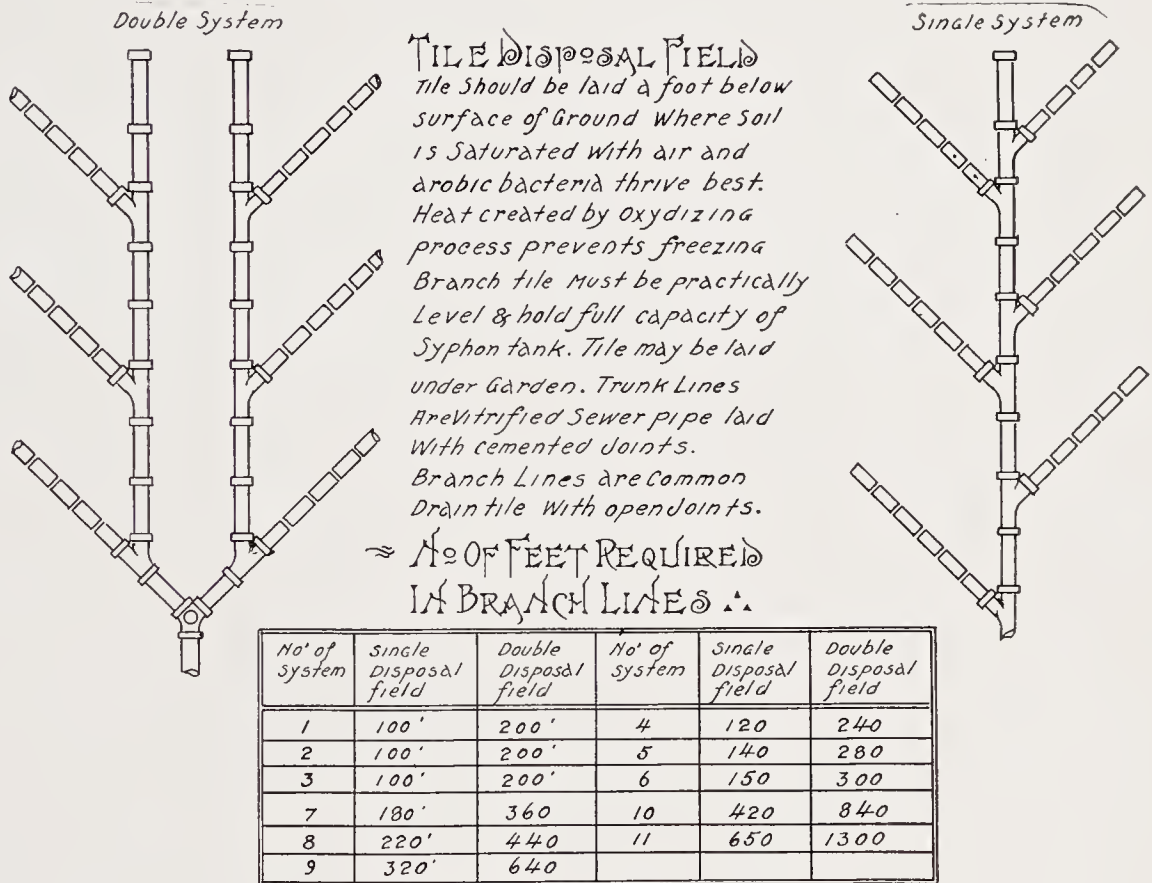 Double System
Single System
TILE DISPOSAL FIELD
Tile Should be laid a foot below
surface of Ground Where Soil
is Saturated With air and
arobic bacteria thrive best.
Heat created by Oxydizing
process prevents freezing
Branch tile Must be practically
Level & hold full capacity of
Syphon tank. Tile may be laid
under Garden. Trunk Lines
Are Vitrified Sewer pipe laid
With cemented Joints.
Branch Lines are Common
Drain tile With open Joints.
≈ No OF FEET REQUIRED
IN BRANCH LINES ∴
No' of System | Single Disposal field | Double Disposal field | No' of system | Single Disposal field | Double Disposal field
1 | 100' | 200' | 4 | 120 | 240
2 | 100' | 200' | 5 | 140 | 280
3 | 100' | 200' | 6 | 150 | 300
7 | 180' | 360 | 10 | 420 | 840
8 | 220' | 440 | 11 | 650 | 1300
9 | 320' | 640